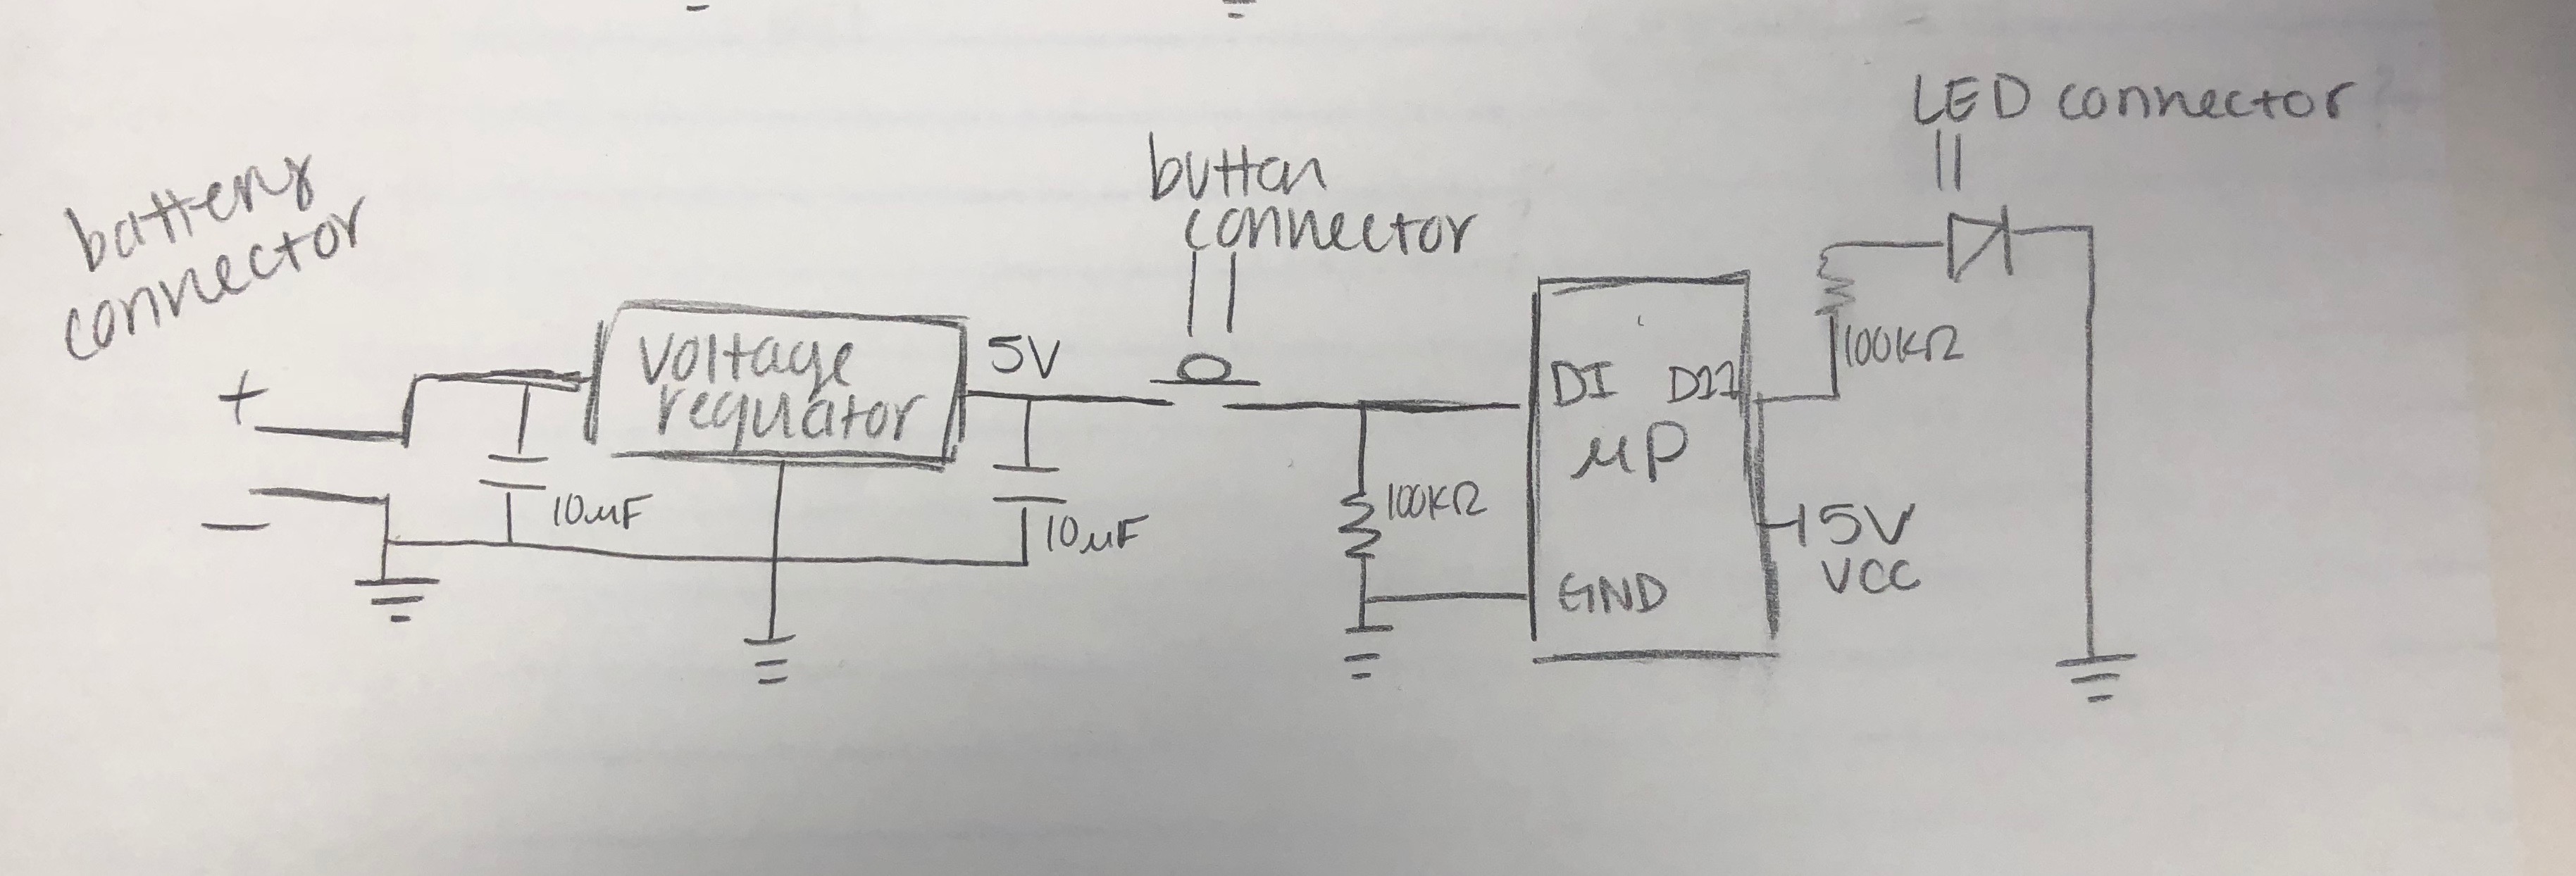 battery
connector
+
-
voltage
reguator
5V
10μF
10μF
button
connector
100KΩ
DI
D11
μP
GND
5V
VCC
100KΩ
LED connector